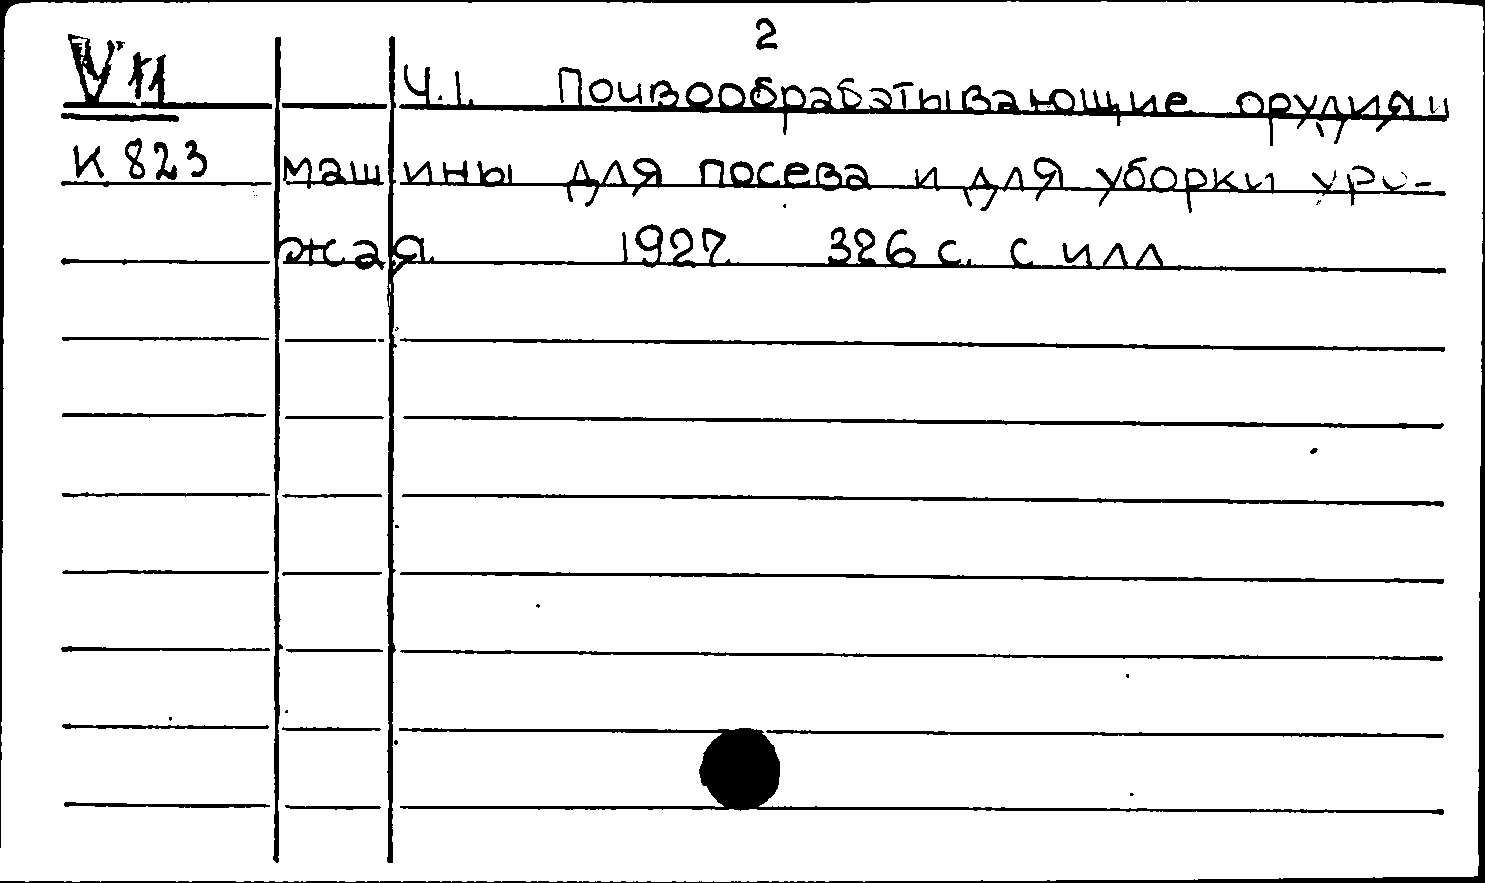 2
V 11 Ч.1. Почвообрабатывающие орудия и
К 823 машины для посева и для уборки уро-
жая. 1927. 326 с. с илл